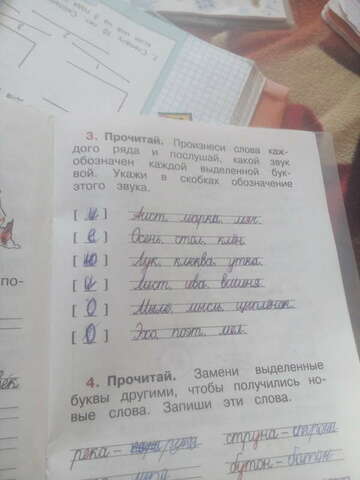 3. Прочитай. Произнеси слова каж-
дого ряда и послушай, какой звук
обозначен каждой выделенной бук-
вой. Укажи в скобках обозначение
этого звука.
[ ] Аист, марка, мяч.
[ е ] Осень, стол, клён.
[ ю ] Лук, клюква, утка.
[ и ] Лист, ива,
[ О ] Мыло, мысль, цыплёнок.
[ О ] Эхо, поэт, мел.
по-
4. Прочитай. Замени выделенные
буквы другими, чтобы получились но-
вые слова. Запиши эти слова.
река – рука струна –
бутон – батон